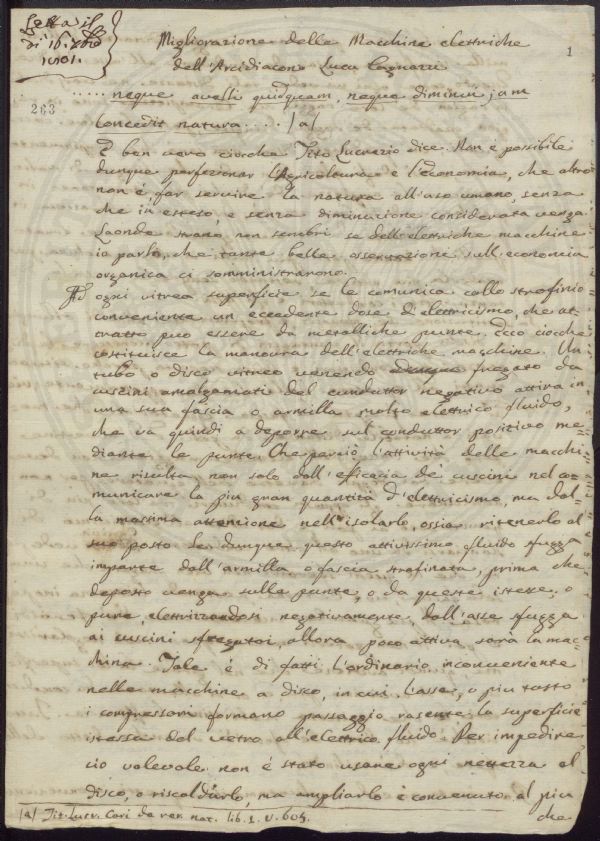 Letta il
di 16. 9bre
1801.
Migliorazione delle Macchine elettriche
dell'Arcidiacono Luca Cagnazzi
1
263
..... neque avelli quidquam, neque diminui jam
Concedit natura .... /a/
È ben vero ciocche Tito Lucrezio dice. Non è possibile
dunque perfezionar l'Agricoltura e l'economia, che altro
non è, far servire la natura all'uso umano, senza
che in esteso, e senza diminuzione considerata venga.
Laonde strano non sembri se dell'elettriche macchine
io parlo, che tante belle osservazione sull'economia
organica ci somministrarono.
Ad ogni vitrea superficie se le comunica collo strofinio
conveniente un eccedente dose di elettricismo, che at=
tratto può essere da metalliche punte. Ecco ciocche
costituisce la manovra dell'elettriche macchine. Un
tubo o disco vitreo venendo fregato da
cuscini amalgamati del conduttor negativo attira in
una sua fascia o armilla molto elettrico fluido,
che va quindi a deporre sul conduttor positivo me=
diante le punte. Che perciò l'attività delle macchi=
ne risulta non solo dall'efficacia de' cuscini nel co=
municare la più gran quantità d'elettricismo, ma dal=
la massima attenzione nell'isolarlo, ossia ritenerlo al
suo posto. Se dunque questo attivissimo fluido sfugga
in parte dall'armilla o fascia strofinata, prima che
deposto venga sulle punte, o da queste istesse, o
pure elettrizzandosi negativamente dall'asse sfugga
ai cuscini sfregatori, allora poco attiva sarà la mac=
china. Tale è di fatti l'ordinario inconveniente
nelle macchine a disco, in cui l'asse, o più tosto
i compressori formano passaggio rasente la superficie
istessa del vetro all'elettrico fluido. Per impedire
ciò valevole non è stato usare ogni nettezza al
disco, o riscaldarlo, ma ampliarlo è convenuto al più
che
/a/ Tit. Lucr. Cari de rer. nat. lib. 1. v. 604.